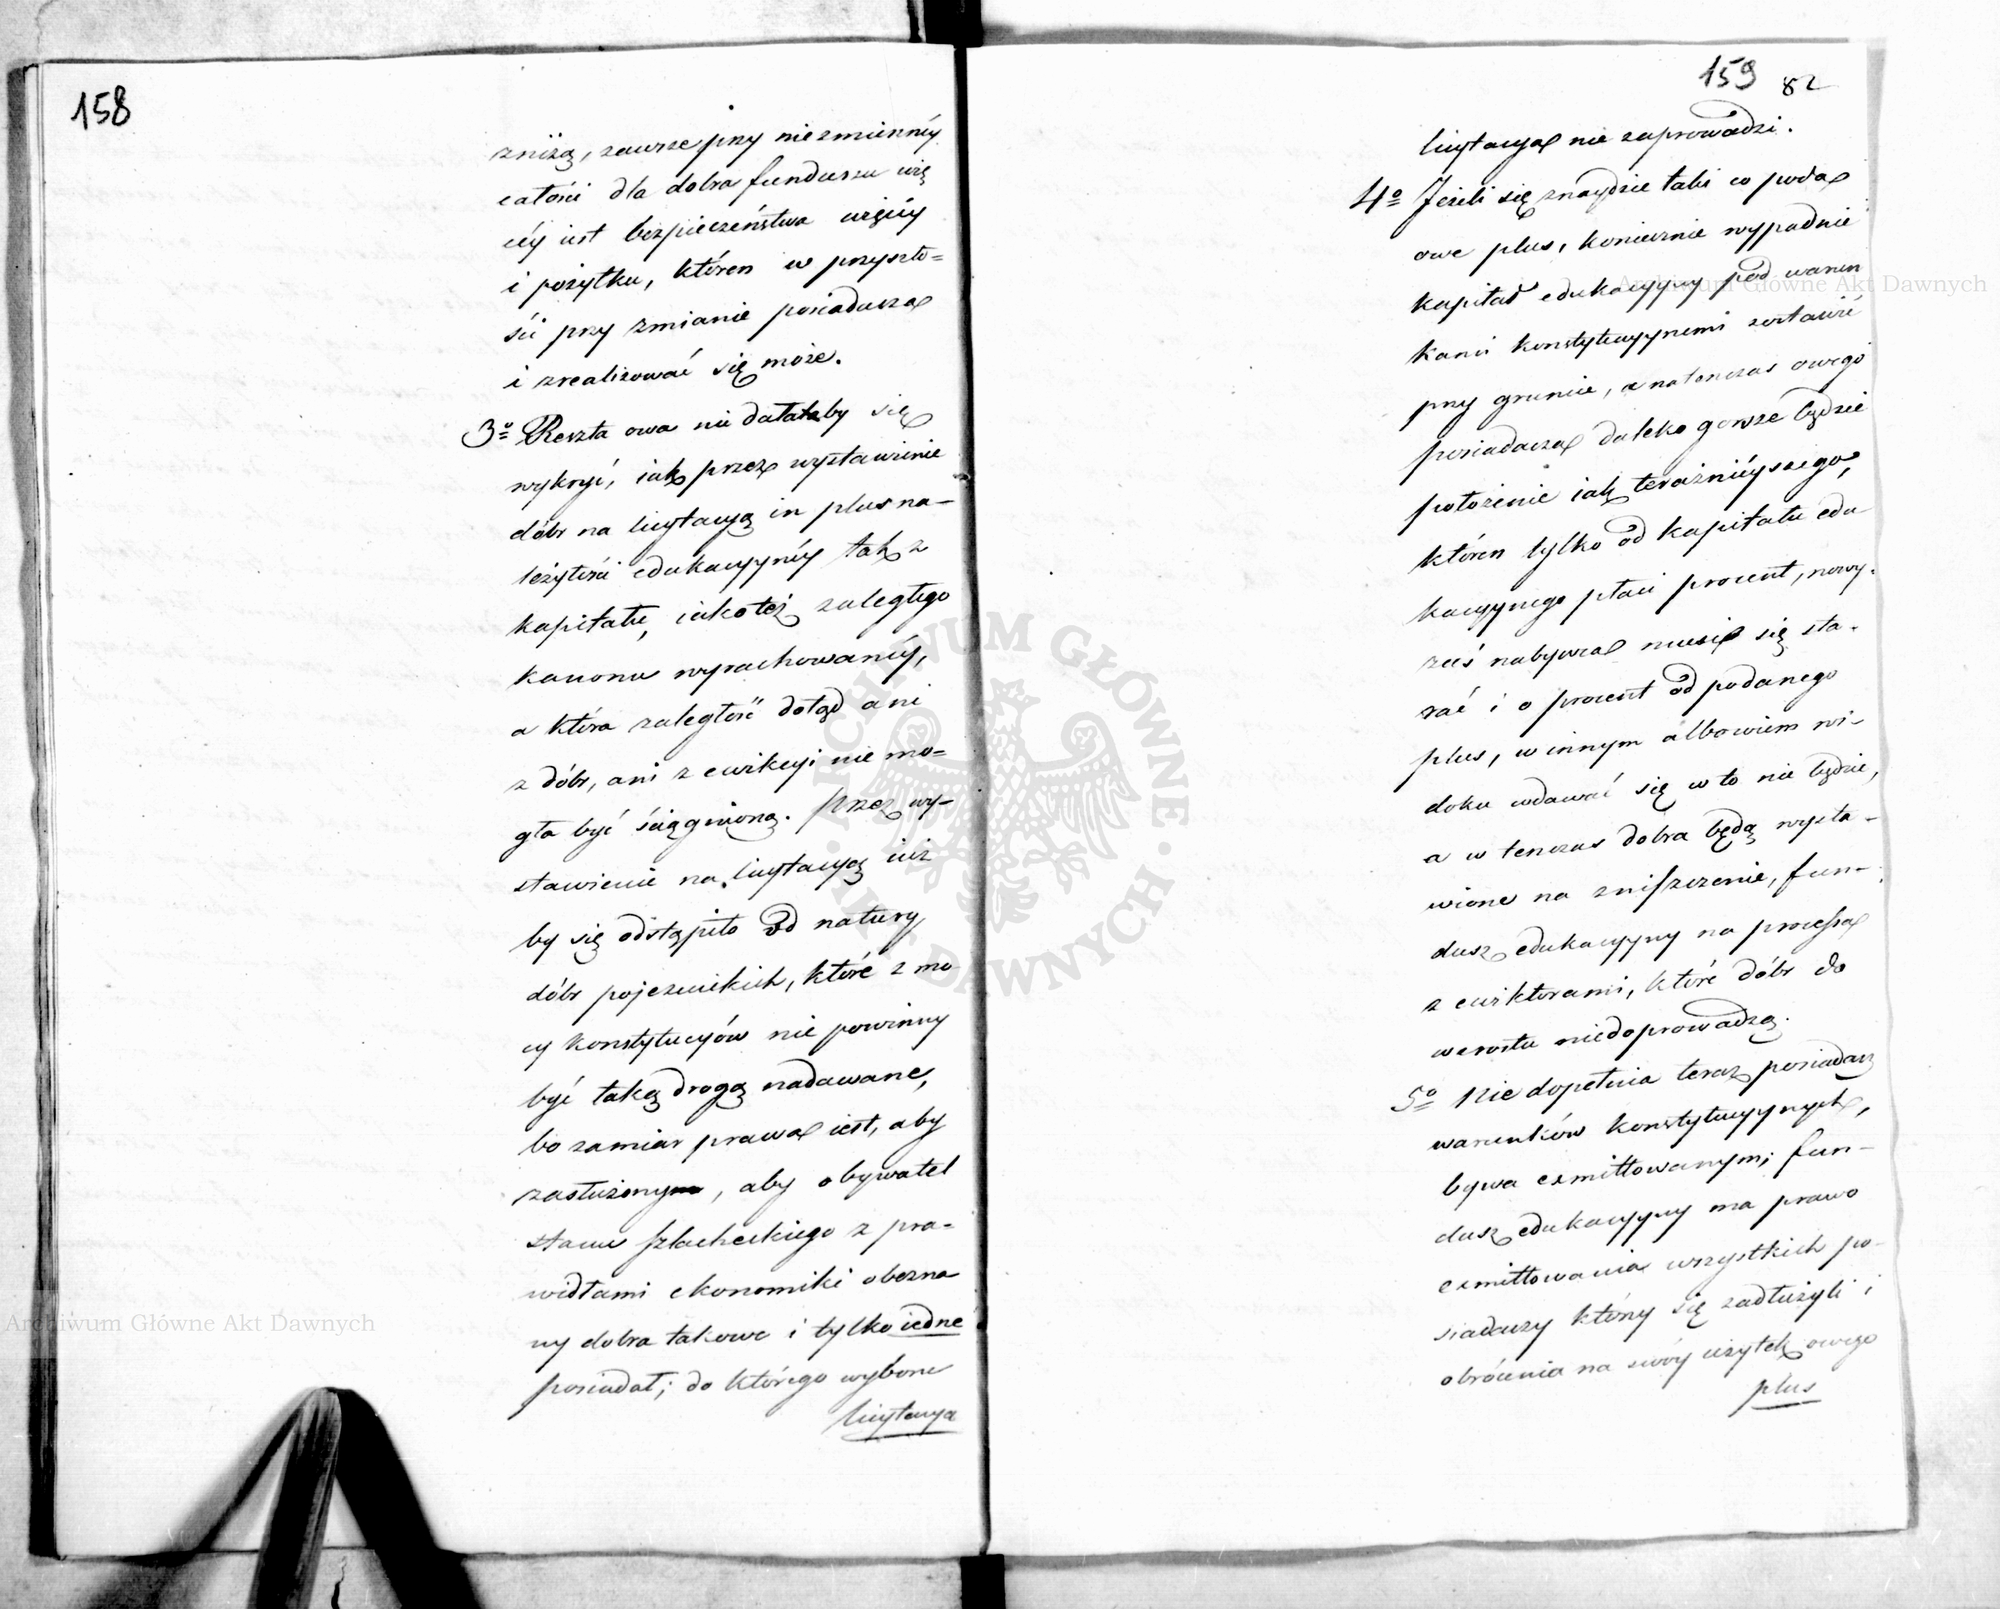 158
zniżą, zawsze przy niezmiennéy
całości dla dobra funduszu wię
céy iest bezpieczeństwa
i pożytku, któren w przyszło=
ści przy zmianie posiadacza
i zrealizować się może.
3o Reszta owa nie dałaby się
wykryć, iak przez wystawienie
dóbr na licytacyą in plus na-
leżytości edukacyynéy tak z
kapitału, iako też zaległego
kanonu wyrachowanéy,
a która zaległość dotąd ani
z dóbr, ani z ewikcyi nie mo=
gła być ściągnioną. Przez wy-
stawienie na licytacyą iuż
by się odstąpiło od natury
dóbr pojezuickich, które z mo
cy konstytucyów nie powinny
być taką drogą nadawane,
bo zamiar prawa iest, aby
zasłużony, aby obywatel
stanu szlacheckiego z pra=
widłami ekonomiki obezna
ny dobra takowe i tylko iedne
posiadał; do którego wyboru
licytacya
159 82
licytacya nie zaprowadzi.
4o Jeżeli się znaydzie taki co poda
owe plus, koniecznie wypadnie
kapitał edukacyyny pod warun
kami konstytucyynemi zostawić
przy gruncie, a natenczas owego
posiadacza daleko gorsze będzie
położenie iak teraźnieyszego,
któren tylko od kapitału edu
kacyynego płaci procent, nowy
zaś nabywca musi się sta-
rać i o procent od podanego
plus, w innym albowiem wi-
doku wdawać się w to nie będzie,
a w tenczas dobra będą wysta-
wione na zniszczenie, fun-
dusz edukacyyny na processa
z ewiktorami, które dóbr do
wzrostu niedoprowadzą.
5o Nie dopełnia teraz posiadacz
warunków konstytucyynych,
bywa exmittowanym; fun-
dusz edukacyyny ma prawo
exmittowania wszystkich po-
siadaczy którzy się zadłużyli i
obrócenia na swóy użytek owego
plus
Archiwum Główne Akt Dawnych
Archiwum Główne Akt Dawnych
ARCHIWUM GŁÓWNE · AKT DAWNYCH ·